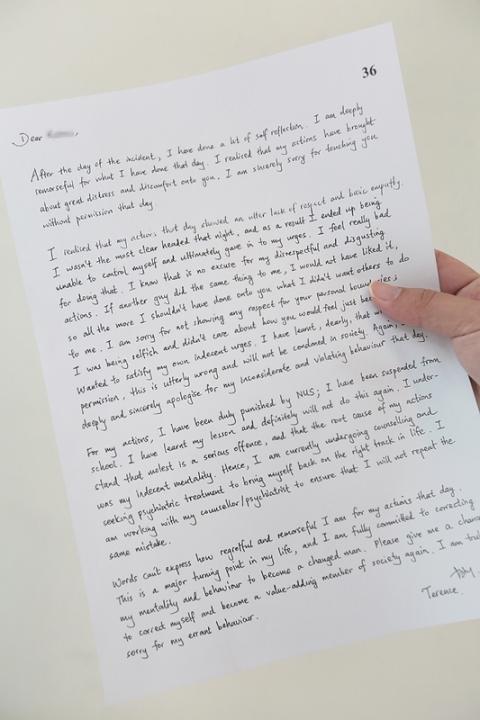 36
Dear
After the day of the incident, I have done a lot of self reflection. I am deeply
remorseful for what I have done that day. I realised that my actions have brought
about great distress and discomfort onto you. I am sincerely sorry for touching you
without permission that day.
I realised that my actions that day showed an utter lack of respect and basic empathy.
I wasn't the most clear headed that night, and as a result I ended up being
unable to control myself and ultimately gave in to my urges. I feel really bad
for doing that. I know that is no excuse for my disrespectful and disgusting
actions. If another guy did the same thing to me, I would not have liked it,
so all the more I shouldn't have done onto you what I didn't want others to do
to me. I am sorry for not showing any respect for your personal boundaries;
I was being selfish and didn't care about how you would feel just
wanted to satisfy my own indecent urges. I have learnt, dearly, that
permission, this is utterly wrong and will not be condoned in society. Again,
deeply and sincerely apologise for my inconsiderate and violating behaviour that day.
For my actions, I have been duly punished by NUS; I have been suspended from
school. I have learnt my lesson and definitely will not do this again. I under-
stand that molest is a serious offence, and that the root cause of my actions
was my indecent mentality. Hence, I am currently undergoing counselling and
seeking psychiatric treatment to bring myself back on the right track in life. I
am working with my counsellor/psychiatrist to ensure that I will not repeat the
same mistake.
Words can't express how regretful and remorseful I am for my actions that day.
This is a major turning point in my life, and I am fully committed to correcting
my mentality and behaviour to become a changed man. Please give me a
to correct myself and become a value-adding member of society again. I am
sorry for my errant behaviour.
Terence